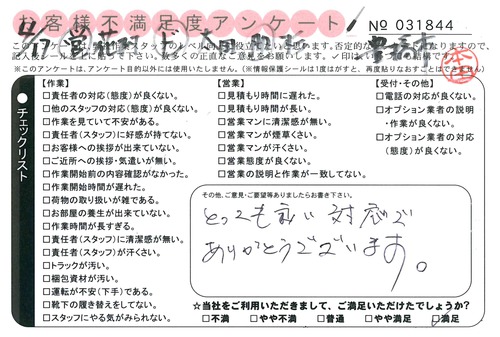 お客様不満足度アンケート
No 031844
※このアンケートは、アンケート目的以外には使用いたしません。(※情報保護シールは1度はがすと、再度貼りなおすことはできません)
チェックリスト
【作業】
□責任者の対応(態度)が良くない。
□他のスタッフの対応(態度)が良くない。
□作業を見ていて不安がある。
□責任者(スタッフ)に好感が持てない。
□お客様への挨拶が出来ていない。
□ご近所への挨拶・気遣いが無い。
□作業開始前の内容確認がなかった。
□作業開始時間が遅れた。
□荷物の取り扱いが雑である。
□お部屋の養生が出来ていない。
□作業時間が長すぎる。
□責任者(スタッフ)に清潔感が無い。
□責任者(スタッフ)が汗くさい。
□トラックが汚い。
□梱包資材が汚い。
□運転が不安(下手)である。
□靴下の履き替えをしてない。
□スタッフにやる気がみられない。
【営業】
□見積もり時間に遅れた。
□見積もり時間が長い。
□営業マンに清潔感が無い。
□営業マンが煙草くさい。
□営業マンが汗くさい。
□営業態度が良くない。
□営業の説明と作業が一致してない。
【受付・その他】
□電話の対応が良くない。
□オプション業者の説明
・作業が良くない。
□オプション業者の対応
(態度)が良くない。
その他、ご意見・ご要望等ありましたらお書き下さい。
とっても良い対応で
ありがとうございます。
☆当社をご利用いただきまして、ご満足いただけたでしょうか?
□不満 □やや不満 □普通 □やや満足 □満足